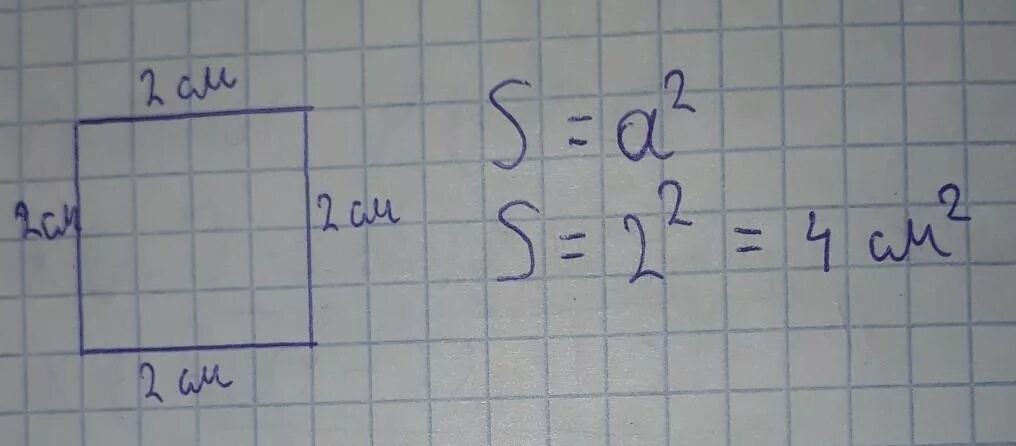 2 см
2 см
2 см
2 см
S = a²
S = 2² = 4 см²